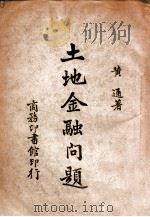 黄通著
土地金融问题
商務印書館印行